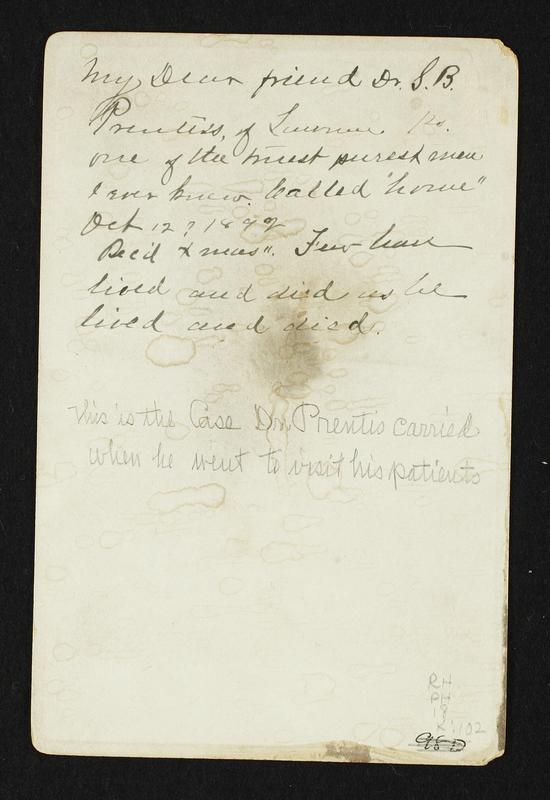 My Dear friend Dr. S. B.
Prentiss, of Lawrence Ks.
one of the truest purest men
I ever knew. Called "home"
Oct 12? 1899
Rec'd Xmas". Few have
lived and died as he
lived and died.
This is the Case Dr. Prentis carried
when he went to visit his patients
RH
PH
18
K:102